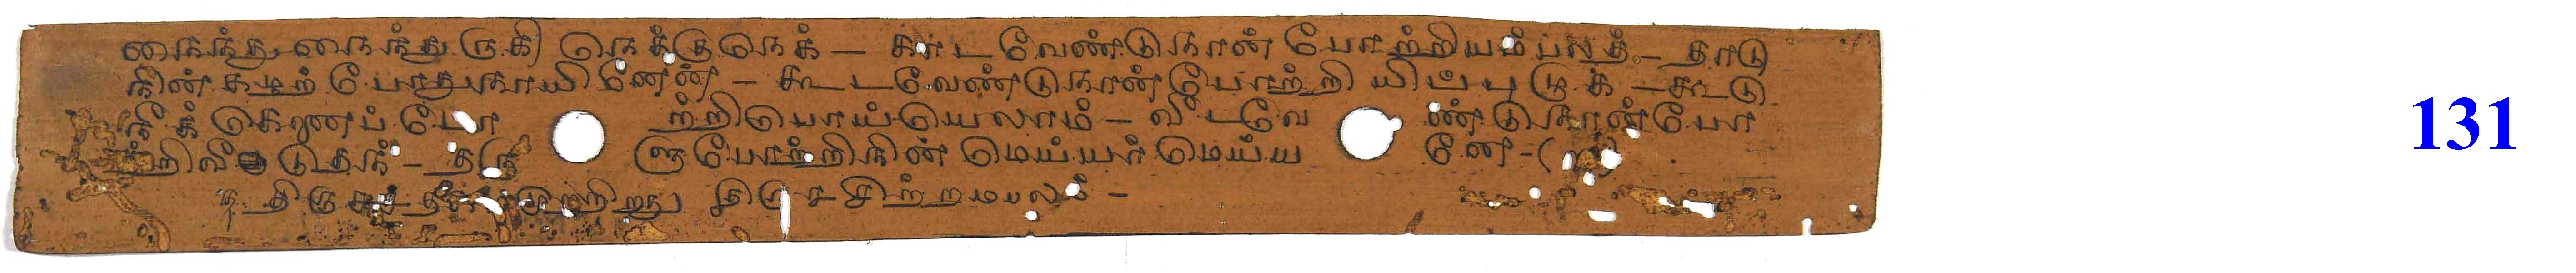 நைந்து நைந்துருகி நெக்குநெக் – காடவேண்டுநான் போற்றியம்பலத் – தாடு
நின்கழற் போதுநாயினேன் – கூடவேண்டுநான்போற்றி யிப்புழுக் – கூடு
நீக் கெனைப் போற்றிபொய்யெலாம் – வீடவேண்டுநான்போ
ற்றிவீடுதந் – தருளுபோற்றிநின் மெய்யர் மெய்ய னே –
முற்றிற்று திருச்சிற்றம்பலம் –
131